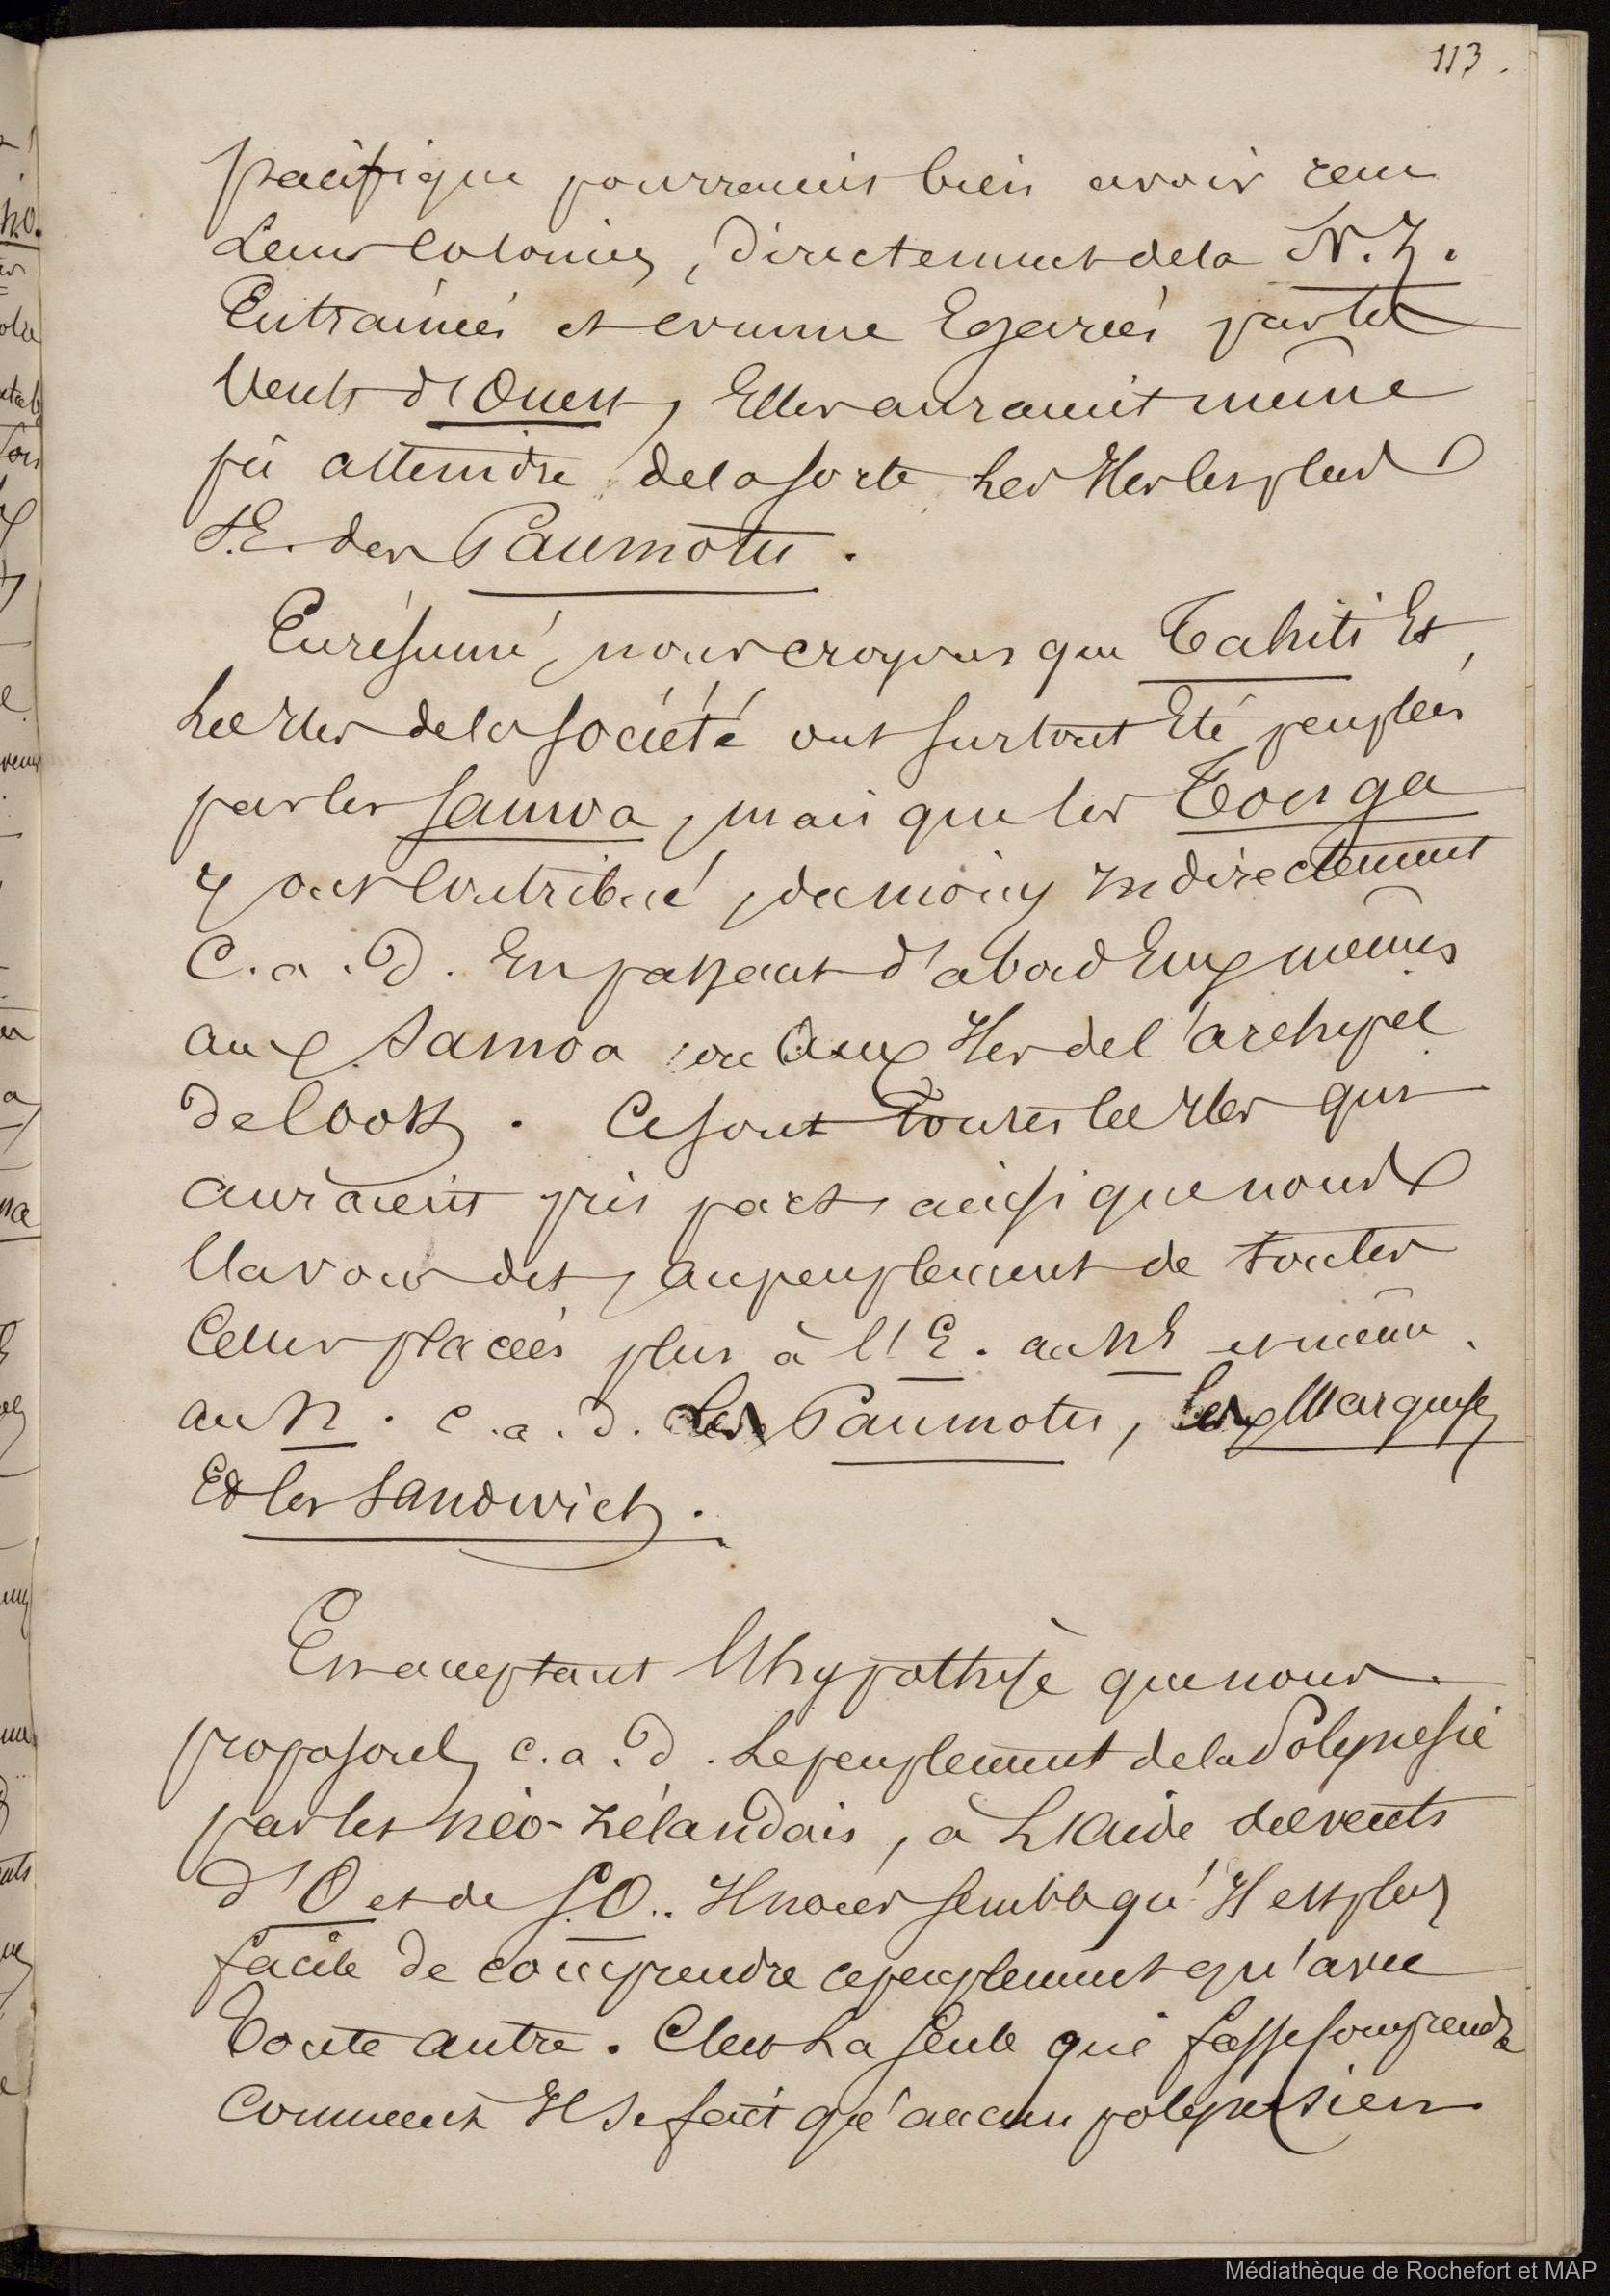 113.
pacifique pourraient bien avoir reçu
Leurs Colonies, directement de la N. Z.
Entrainées et comme Egarées par les
Vents d'Ouest, Elles auraient même
pû atteindre de la sorte les Iles les plus
S.E. des Paumotu.
En résumé, nous croyons que Tahiti Et,
les Iles de la Société ont surtout Eté peuplées
par les Samoa, mais que les Tonga
y ont Contribué, du moins Indirectement
C. a. D. En passant d'abord Eux mêmes
aux Samoa ou aux Iles de l'archipel
de Cook. Ce sont toutes les Iles qui
auraient pris part, ainsi que nous
l'avons dit, au peuplement de toutes
Celles placées plus à l'E. au NE et même
au N. c. a. d. les Paumotu, les Marquises
Et les Sandwich.
En acceptant l'hypothèse que nous
proposons, c. a. d. le peuplement de la Polynesie
par les néo-zélandais, à L'aide des vents
d'O et de S.O.. Il nous semble qu'Il est plus
facile de comprendre ce peuplement qu'avec
Toute autre. C'est La seule qui fasse comprendre
comment Il se fait qu'aucun polynesien
Médiathèque de Rochefort et MAP